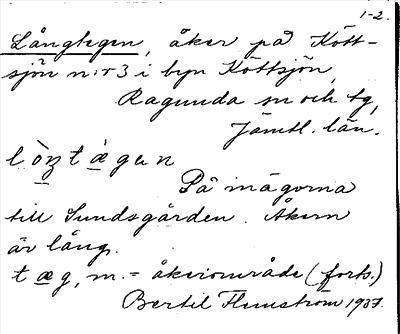 1-2.
Långtegen, åker på Kött-
sjön n:r 3 i byn Köttsjön,
Ragunda sn och tg,
Jämtl. län.
På mägorna
till Sundsgården. Åkern
är lång.
t æ g, m. = åkerområde (forts.)
Bertil Flemström 1937.